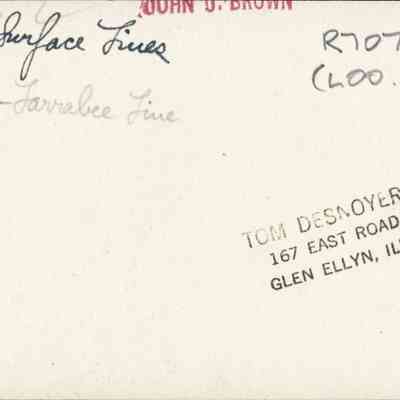 JOHN J. BROWN
Surface Lines
R707
(LOO.
- Larrabee Line
TOM DESNOYER
167 EAST ROAD
GLEN ELLYN, IL